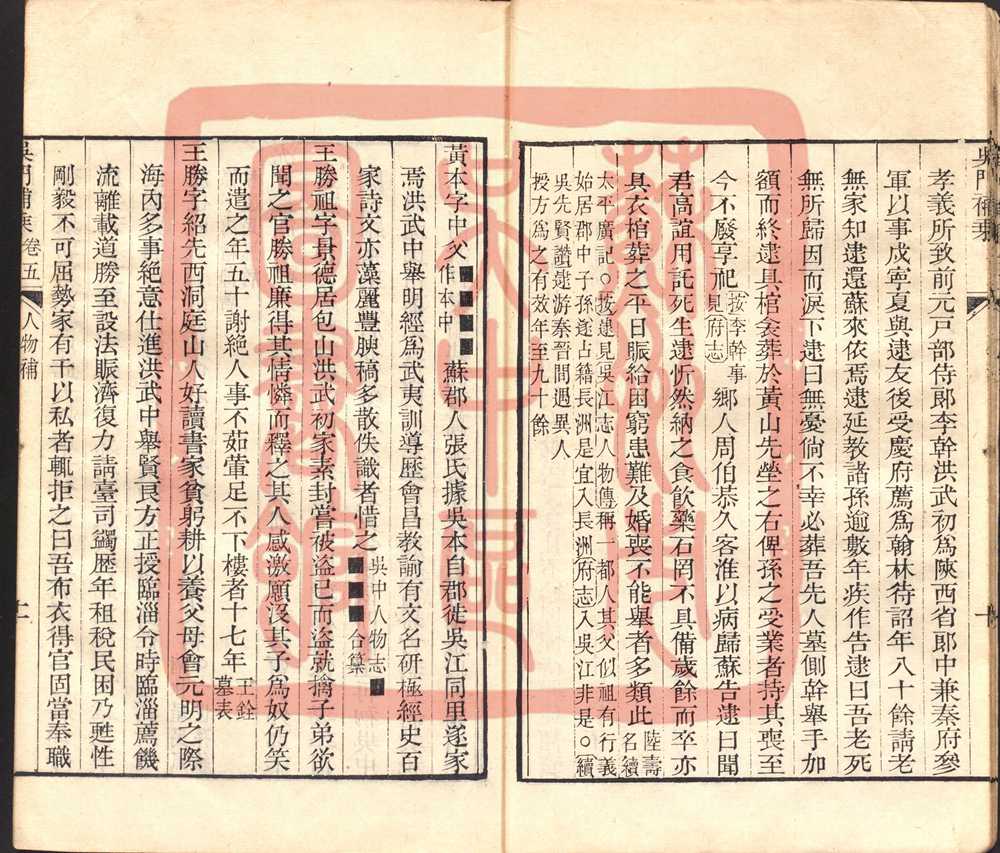 孝義所致前元戸部侍郎李幹洪武初爲陝西省郎中兼秦府參
軍以事成寧夏與逮友後受慶府薦爲翰林待詔年八十餘請老
無家知逮還蘇來依焉逮延教諸孫逾數年疾作告逮曰吾老死
無所歸因而淚下逮曰無憂倘不幸必葬吾先人墓側幹舉手加
額而終逮具棺衾葬於黃山先塋之右俾孫之受業者持其喪至
今不廢享祀按李幹事見府志鄉人周伯恭久客淮以病歸蘇告逮曰聞
君高誼用託死生逮忻然納之食飲藥石罔不具備歲餘而卒亦
具衣棺葬之平日賑給困窮患難及婚喪不能舉者多類此陸壽名續
太平廣記○按逮見吳江志人物傳稱一都人其父似祖有行義
始居郡中子孫遂占籍長洲是宜入長洲府志入吳江非是○續
吳先賢讚逮游秦晉間遇異人
授方爲之有效年至九十餘
吳門補乘
十
黃本字中父作本中蘇郡人張氏據吳本自郡徙吳江同里遂家
焉洪武中舉明經爲武夷訓導歷會昌教諭有文名研極經史百
家詩文亦藻麗豐腴稿多散佚識者惜之吳中人物志合纂
王勝祖字景德居包山洪武初家素封嘗被盜已而盜就擒子弟欲
聞之官勝祖廉得其情憐而釋之其人感激願沒其子爲奴仍笑
而遣之年五十謝絕人事不茹葷足不下樓者十七年王銓墓表
王勝字紹先西洞庭山人好讀書家貧躬耕以養父母會元明之際
海內多事絕意仕進洪武中舉賢良方正授臨淄令時臨淄薦饑
流離載道勝至設法賑濟復力請臺司蠲歷年租稅民困乃甦性
剛毅不可屈勢家有干以私者輒拒之曰吾布衣得官固當奉職
吳門補乘卷五
人物補
十一
蘇州大學圖書館